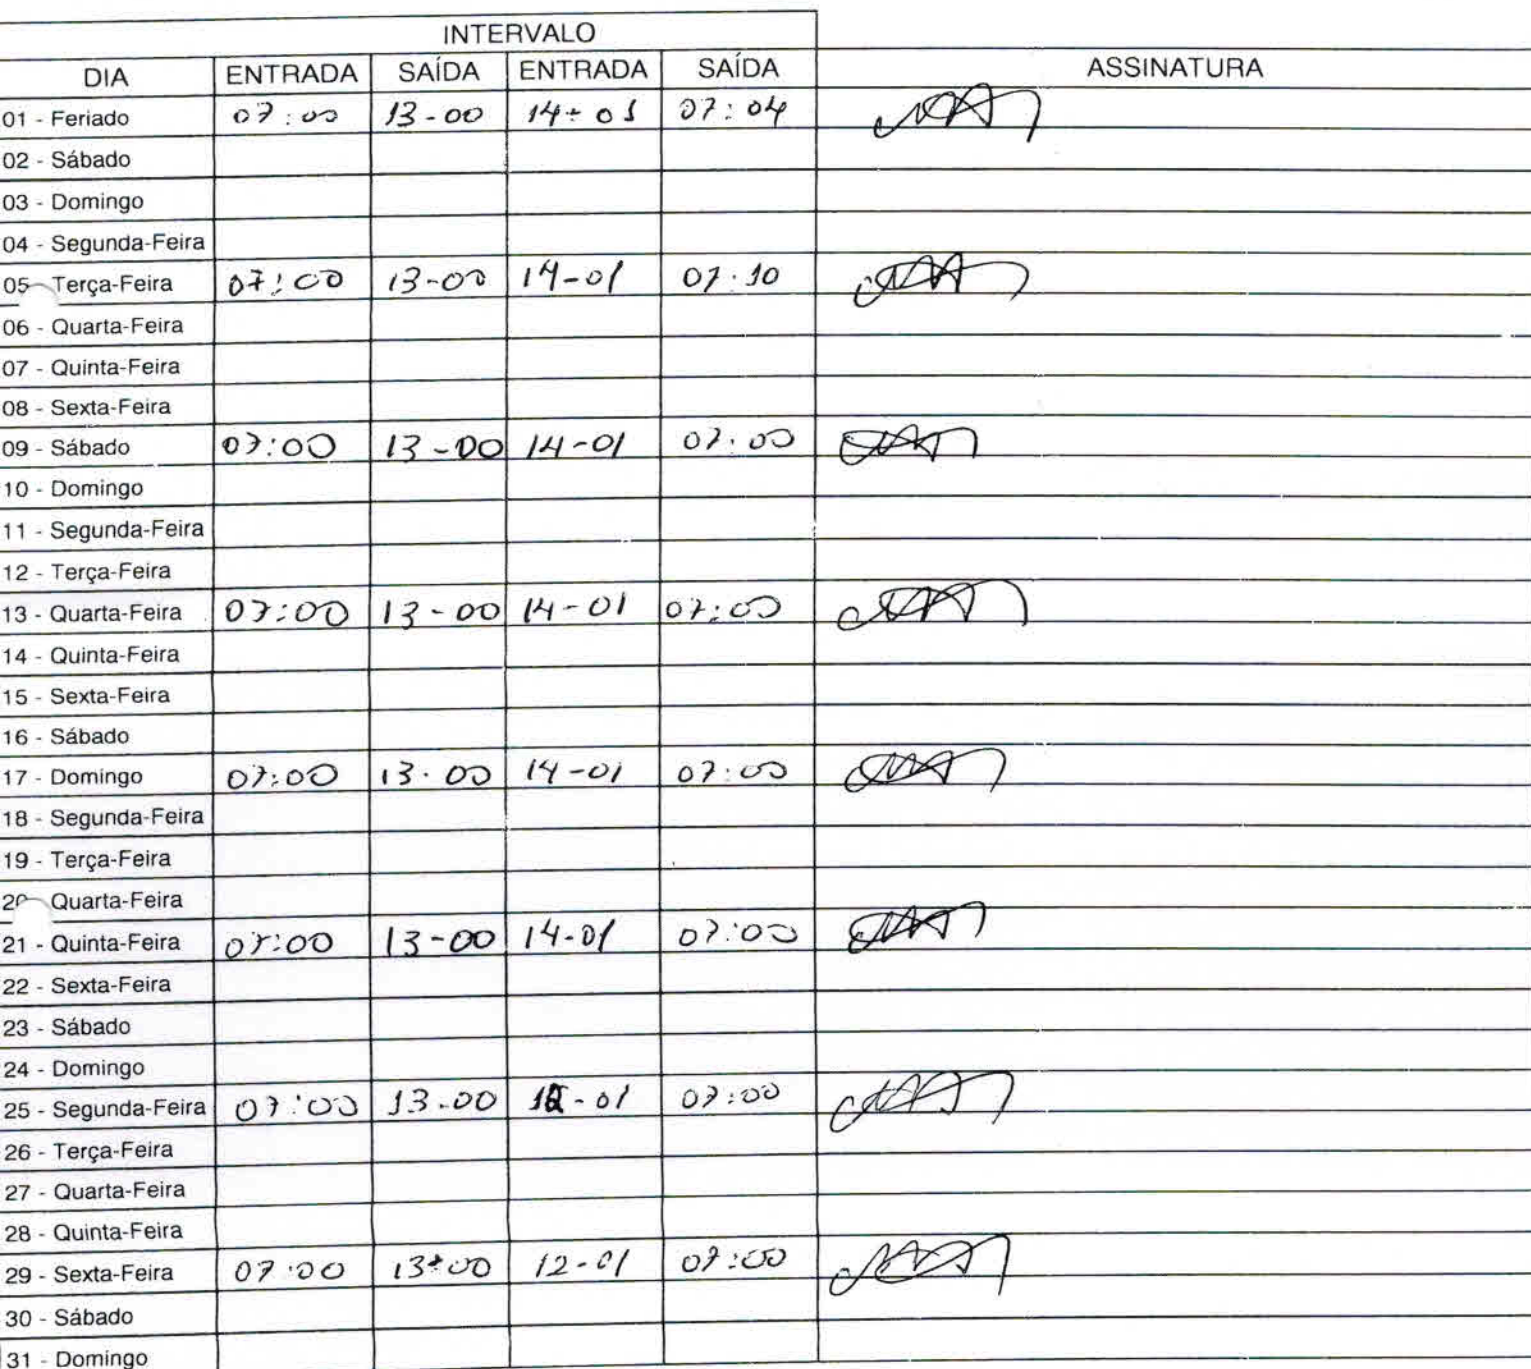 INTERVALO
DIA ENTRADA SAÍDA ENTRADA SAÍDA ASSINATURA
01 - Feriado 07:00 13-00 14-01 07:04
02 - Sábado
03 - Domingo
04 - Segunda-Feira
05 Terça-Feira 07:00 13-00 14-01 07:10
06 - Quarta-Feira
07 - Quinta-Feira
08 - Sexta-Feira
09 - Sábado 07:00 13-00 14-01 07:00
10 - Domingo
11 - Segunda-Feira
12 - Terça-Feira
13 - Quarta-Feira 07:00 13-00 14-01 07:00
14 - Quinta-Feira
15 - Sexta-Feira
16 - Sábado
17 - Domingo 07:00 13.00 14-01 07:00
18 - Segunda-Feira
19 - Terça-Feira
20 Quarta-Feira
21 - Quinta-Feira 07:00 13-00 14-01 07:00
22 - Sexta-Feira
23 - Sábado
24 - Domingo
25 - Segunda-Feira 07:00 13.00 12-01 07:00
26 - Terça-Feira
27 - Quarta-Feira
28 - Quinta-Feira
29 - Sexta-Feira 07:00 13:00 12-01 07:00
30 - Sábado
31 - Domingo